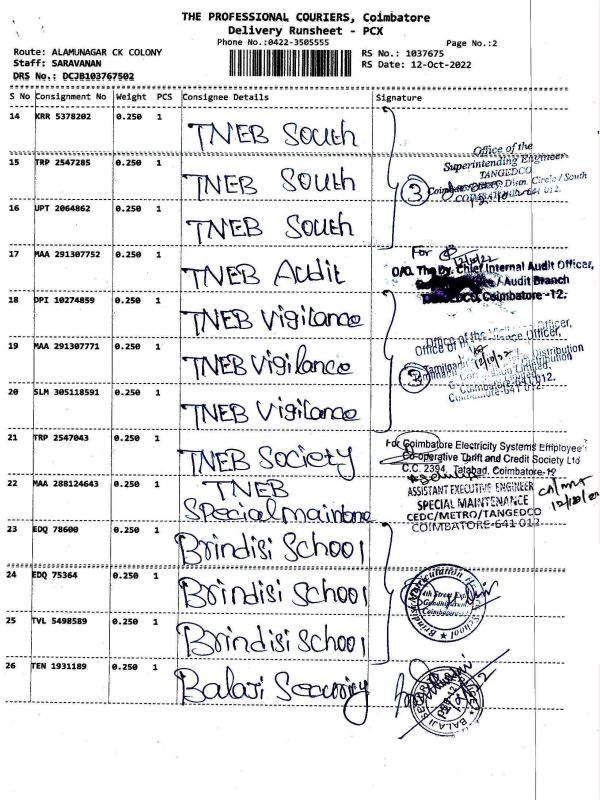 THE PROFESSIONAL COURIERS, Coimbatore
Delivery Runsheet - PCX
Phone No.:0422-3505555
Page No.:2
Route: ALAMUNAGAR CK COLONY
RS No.: 1037675
Staff: SARAVANAN
RS Date: 12-Oct-2022
DRS No.: DCJB103767502
S No Consignment No Weight PCS Consignee Details Signature
14 KRR 5378202 0.250 1 TNEB South
Office of the
Superintending Engineer
TANGEDCO
15 TRP 2547285 0.250 1 TNEB South
3
Distn. Circle / South
16 UPT 2064862 0.250 1 TNEB South
For
12/10/22
17 MAA 291307752 0.250 1 TNEB Audit
O/O. The Dy. Chief Internal Audit Officer,
/ Audit Branch
TANGEDCO, Coimbatore-12.
18 DPI 10274859 0.250 1 TNEB Vigilance
Office of the Vigilance Officer,
19 MAA 291307771 0.250 1 TNEB Vigilance
3
12/10/22
Distribution
20 SLM 305118591 0.250 1 TNEB Vigilance
Coimbatore-641 012.
21 TRP 2547043 0.250 1 TNEB Society
For Coimbatore Electricity Systems Employee's
Co-operative Thrift and Credit Society Ltd
C.C. 2394, Tatabad, Coimbatore-12
22 MAA 288124643 0.250 1 TNEB
Special maintane
ASSISTANT EXECUTIVE ENGINEER
SPECIAL MAINTENANCE
CEDC/METRO/TANGEDCO
COIMBATORE-641 012
23 EDQ 78600 0.250 1 Brindisi School
24 EDQ 75364 0.250 1 Brindisi School
Brindisi Matriculation
School
25 TVL 5498589 0.250 1 Brindisi School
26 TEN 1931189 0.250 1 Balaji Security
BALAJI